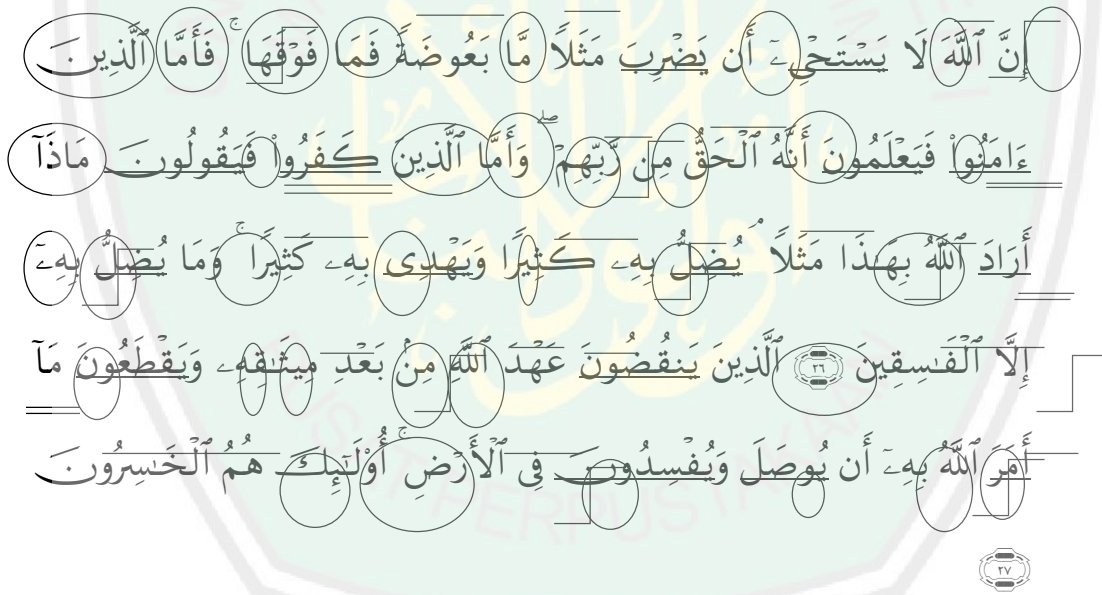 إِنَّ ٱللَّهَ لَا يَسْتَحْىِۦٓ أَن يَضْرِبَ مَثَلًا مَّا بَعُوضَةً فَمَا فَوْقَهَا ۚ فَأَمَّا ٱلَّذِينَ
ءَامَنُوا۟ فَيَعْلَمُونَ أَنَّهُ ٱلْحَقُّ مِن رَّبِّهِمْ ۖ وَأَمَّا ٱلَّذِينَ كَفَرُوا۟ فَيَقُولُونَ مَاذَآ
أَرَادَ ٱللَّهُ بِهَٰذَا مَثَلًا ۘ يُضِلُّ بِهِۦ كَثِيرًا وَيَهْدِى بِهِۦ كَثِيرًا ۚ وَمَا يُضِلُّ بِهِۦٓ
إِلَّا ٱلْفَٰسِقِينَ ٢٦ ٱلَّذِينَ يَنقُضُونَ عَهْدَ ٱللَّهِ مِنۢ بَعْدِ مِيثَٰقِهِۦ وَيَقْطَعُونَ مَآ
أَمَرَ ٱللَّهُ بِهِۦٓ أَن يُوصَلَ وَيُفْسِدُونَ فِى ٱلْأَرْضِ ۚ أُو۟لَٰٓئِكَ هُمُ ٱلْخَٰسِرُونَ
٢٧